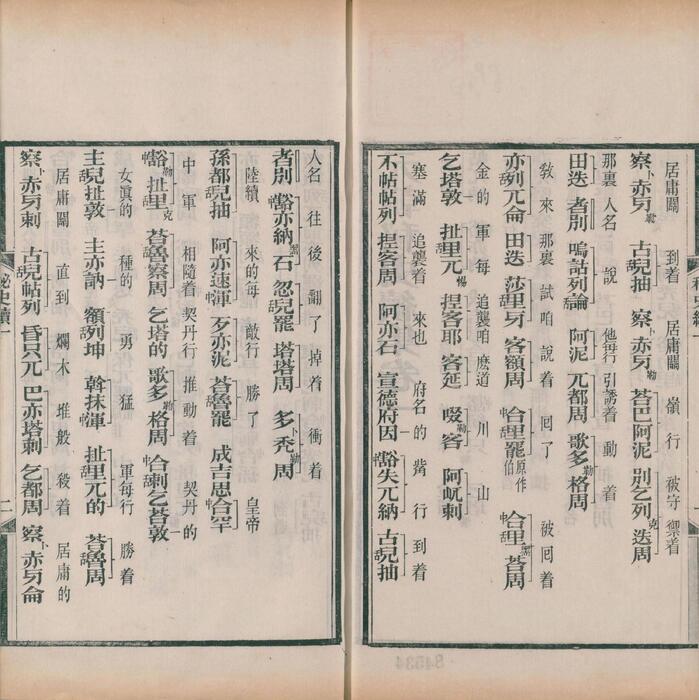 居庸關 到着 居庸關 嶺行 被守禦着
察卜赤牙勒 古兒抽 察卜赤牙勒 荅巴阿泥 別乞列克迭周
那裏 人名 說 他每行 引誘着 動着
田迭 者別 嗚詁列論 阿泥 兀都周 歌多勒格周
敎來 那裏 試咱 說着 囘了 被囘着
亦列兀侖 田迭 莎里牙 客額周 中合里罷 原作伯 中合里黑荅周
金的 軍每 追襲咱 麽道 川 山
乞塔敦 扯舌里兀惕 捏客耶 客延 啜勒客 阿屼剌
塞滿 追襲着 來也 府名的 觜行 到着
不帖帖列 捏客周 阿亦石 宣德府因 中豁失兀納 古兒抽
人名 往後 翻了 掉着 衝着
者別 中豁亦納黑石 忽舌兒罷 塔塔周 多勒禿周
陸續 來的每 敵行 勝了 皇帝
孫都舌兒抽 阿亦速中渾 歹亦泥 荅舌魯罷 成吉思中合罕
中軍 相隨着 契丹行 推動着 契丹的
中豁勒 扯舌里克 荅舌魯察周 乞塔的 歌多勒格周 中合舌剌乞荅敦
女眞的 種的 勇猛 軍每行 勝着
主舌兒扯敦 主亦訥 額列坤 斡抹中渾 扯舌里兀的 荅舌魯周
居庸關 直到 爛木堆般 殺着 居庸的
察卜赤牙剌 古舌兒帖列 昏只兀 巴亦塔剌 乞都周 察卜赤牙侖
祕史續一
二